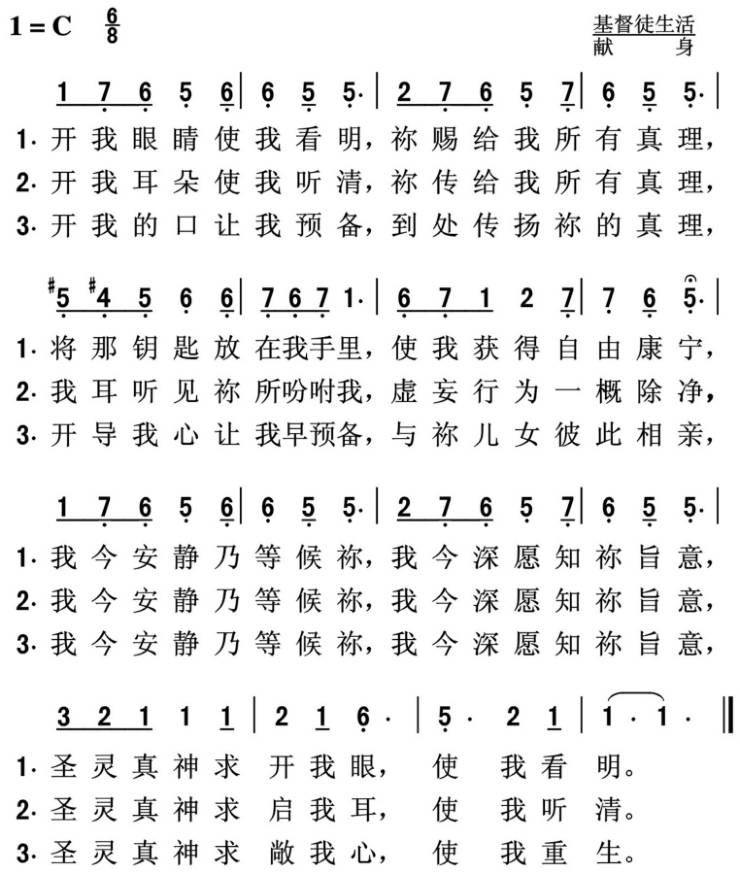 1=C 6/8 基督徒生活
献 身
1 7 6 5 6 | 6 5 5· | 2 7 6 5 7 | 6 5 5· |
1. 开我眼睛使我看明，祢赐给我所有真理，
2. 开我耳朵使我听清，祢传给我所有真理，
3. 开我的口让我预备，到处传扬祢的真理，
#5 #4 5 6 6 | 7 6 7 1· | 6 7 1 2 7 | 7 6 5· |
1. 将那钥匙放在我手里，使我获得自由康宁，
2. 我耳听见祢所吩咐我，虚妄行为一概除净，
3. 开导我心让我早预备，与祢儿女彼此相亲，
1 7 6 5 6 | 6 5 5· | 2 7 6 5 7 | 6 5 5· |
1. 我今安静乃等候祢，我今深愿知祢旨意，
2. 我今安静乃等候祢，我今深愿知祢旨意，
3. 我今安静乃等候祢，我今深愿知祢旨意，
3 2 1 1 1 | 2 1 6· | 5· 2 1 | 1· 1· ‖
1. 圣灵真神求开我眼，使我看明。
2. 圣灵真神求启我耳，使我听清。
3. 圣灵真神求敞我心，使我重生。